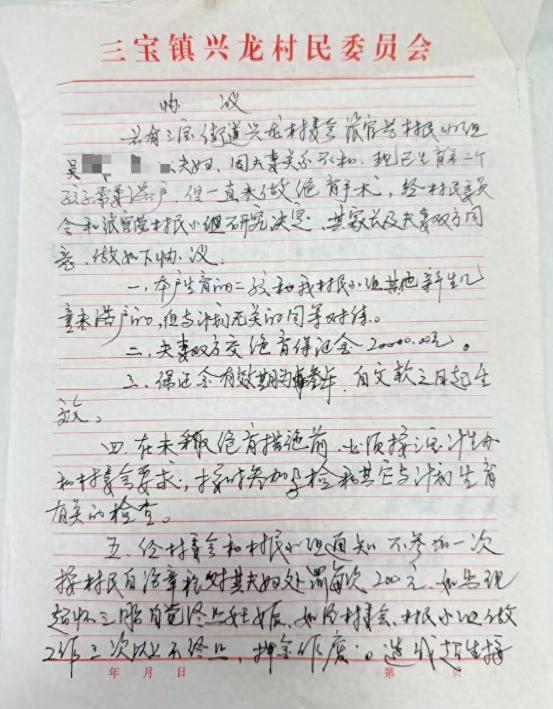 三宝镇兴龙村民委员会
协 议
兹有三宝街道兴龙村委会张官营村民小组
吴 夫妇，因夫妻关系不和，现已生育有二个
孩子需要落户，但一直未做绝育手术，经村民委员
会和张官营村民小组研究决定，其家长及夫妻双方同
意，做如下协议。
一、本户生育的二孩和我村民小组其他新生儿
童未落户的，但与计划无关的同等对待。
二、夫妻双方交绝育保证金20000.00元。
三、保证金有效期为叁年，自交款之日起生
效。
四、在未采取绝育措施前，必须接三宝计生办
和村委会要求，按时参加孕检和其它与计划生育
有关的检查。
五、经村委会和村民小组通知不参加一次
按村民自治章程对其夫妇处罚每次200元，如发现
超怀三胎自觉终止妊娠，如经村委会、村民小组做
工作三次以上不终止，押金作废。造成超生接
年 月 日 第 页